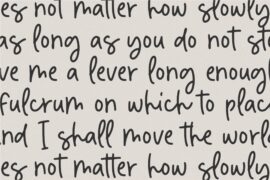 es not matter how slowly
as long as you do not st
ve me a lever long enoug
fulcrum on which to plac
nd I shall move the worl
es not matter how slowly